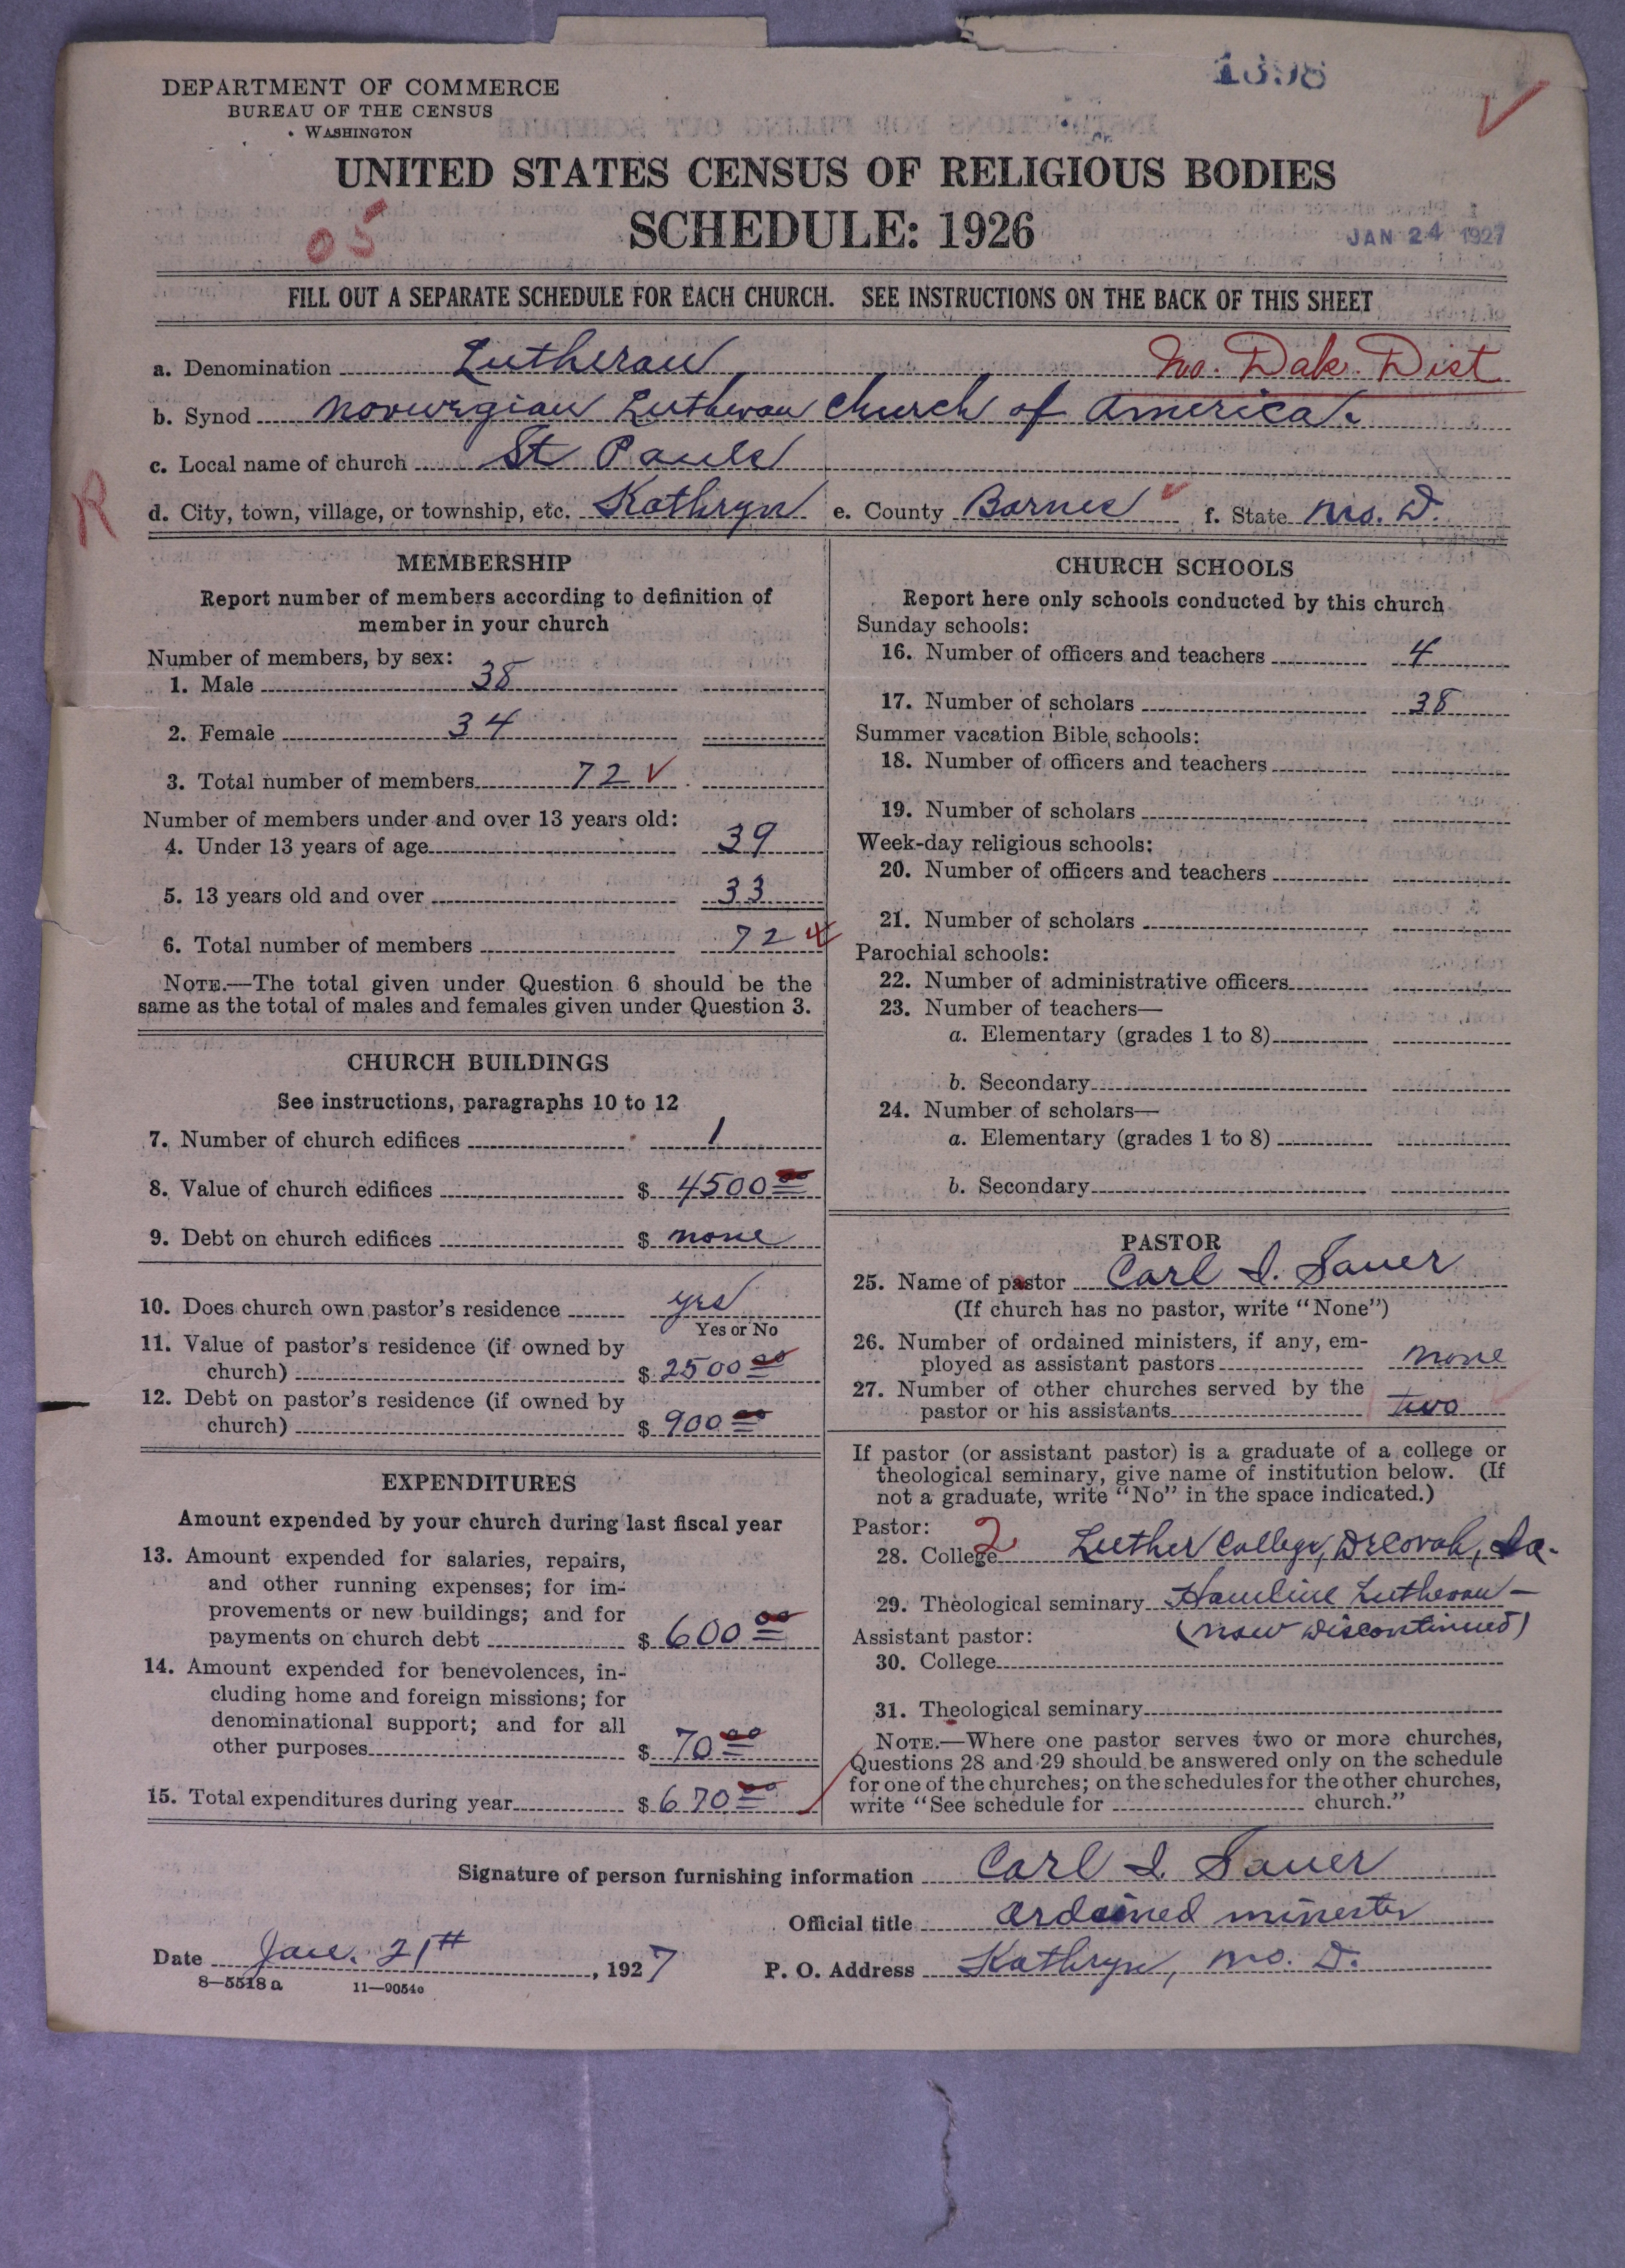 1398
DEPARTMENT OF COMMERCE
BUREAU OF THE CENSUS
WASHINGTON
UNITED STATES CENSUS OF RELIGIOUS BODIES
SCHEDULE: 1926
05
JAN 24 1927
FILL OUT A SEPARATE SCHEDULE FOR EACH CHURCH. SEE INSTRUCTIONS ON THE BACK OF THIS SHEET
a. Denomination Lutheran No. Dak. Dist
b. Synod Norwegian Lutheran Church of America.
c. Local name of church St Pauls
R
d. City, town, village, or township, etc. Kathryn e. County Barnes f. State No. D.
MEMBERSHIP
Report number of members according to definition of
member in your church
Number of members, by sex:
1. Male 38
2. Female 34
3. Total number of members 72
Number of members under and over 13 years old:
4. Under 13 years of age 39
5. 13 years old and over 33
6. Total number of members 72
NOTE.—The total given under Question 6 should be the
same as the total of males and females given under Question 3.
CHURCH BUILDINGS
See instructions, paragraphs 10 to 12
7. Number of church edifices 1
8. Value of church edifices $ 4500 00
9. Debt on church edifices $ none
10. Does church own pastor's residence yes
Yes or No
11. Value of pastor's residence (if owned by
church) $ 2500 00
12. Debt on pastor's residence (if owned by
church) $ 900 00
EXPENDITURES
Amount expended by your church during last fiscal year
13. Amount expended for salaries, repairs,
and other running expenses; for im-
provements or new buildings; and for
payments on church debt $ 600 00
14. Amount expended for benevolences, in-
cluding home and foreign missions; for
denominational support; and for all
other purposes $ 70 00
15. Total expenditures during year $ 670 00
CHURCH SCHOOLS
Report here only schools conducted by this church
Sunday schools:
16. Number of officers and teachers 4
17. Number of scholars 38
Summer vacation Bible schools:
18. Number of officers and teachers
19. Number of scholars
Week-day religious schools:
20. Number of officers and teachers
21. Number of scholars
Parochial schools:
22. Number of administrative officers
23. Number of teachers—
a. Elementary (grades 1 to 8)
b. Secondary
24. Number of scholars—
a. Elementary (grades 1 to 8)
b. Secondary
PASTOR
25. Name of pastor Carl I. Sauer
(If church has no pastor, write "None")
26. Number of ordained ministers, if any, em-
ployed as assistant pastors none
27. Number of other churches served by the
pastor or his assistants two
If pastor (or assistant pastor) is a graduate of a college or
theological seminary, give name of institution below. (If
not a graduate, write "No" in the space indicated.)
Pastor:
28. College 2 Luther College, Decorah, Ia.
29. Theological seminary Hamline Lutheran—
(now discontinued)
Assistant pastor:
30. College
31. Theological seminary
NOTE.—Where one pastor serves two or more churches,
Questions 28 and 29 should be answered only on the schedule
for one of the churches; on the schedules for the other churches,
write "See schedule for church."
Signature of person furnishing information Carl I. Sauer
Official title Ordained minister
Date Jan. 21st, 1927 P. O. Address Kathryn, No. D.
8—5518a 11—9054c